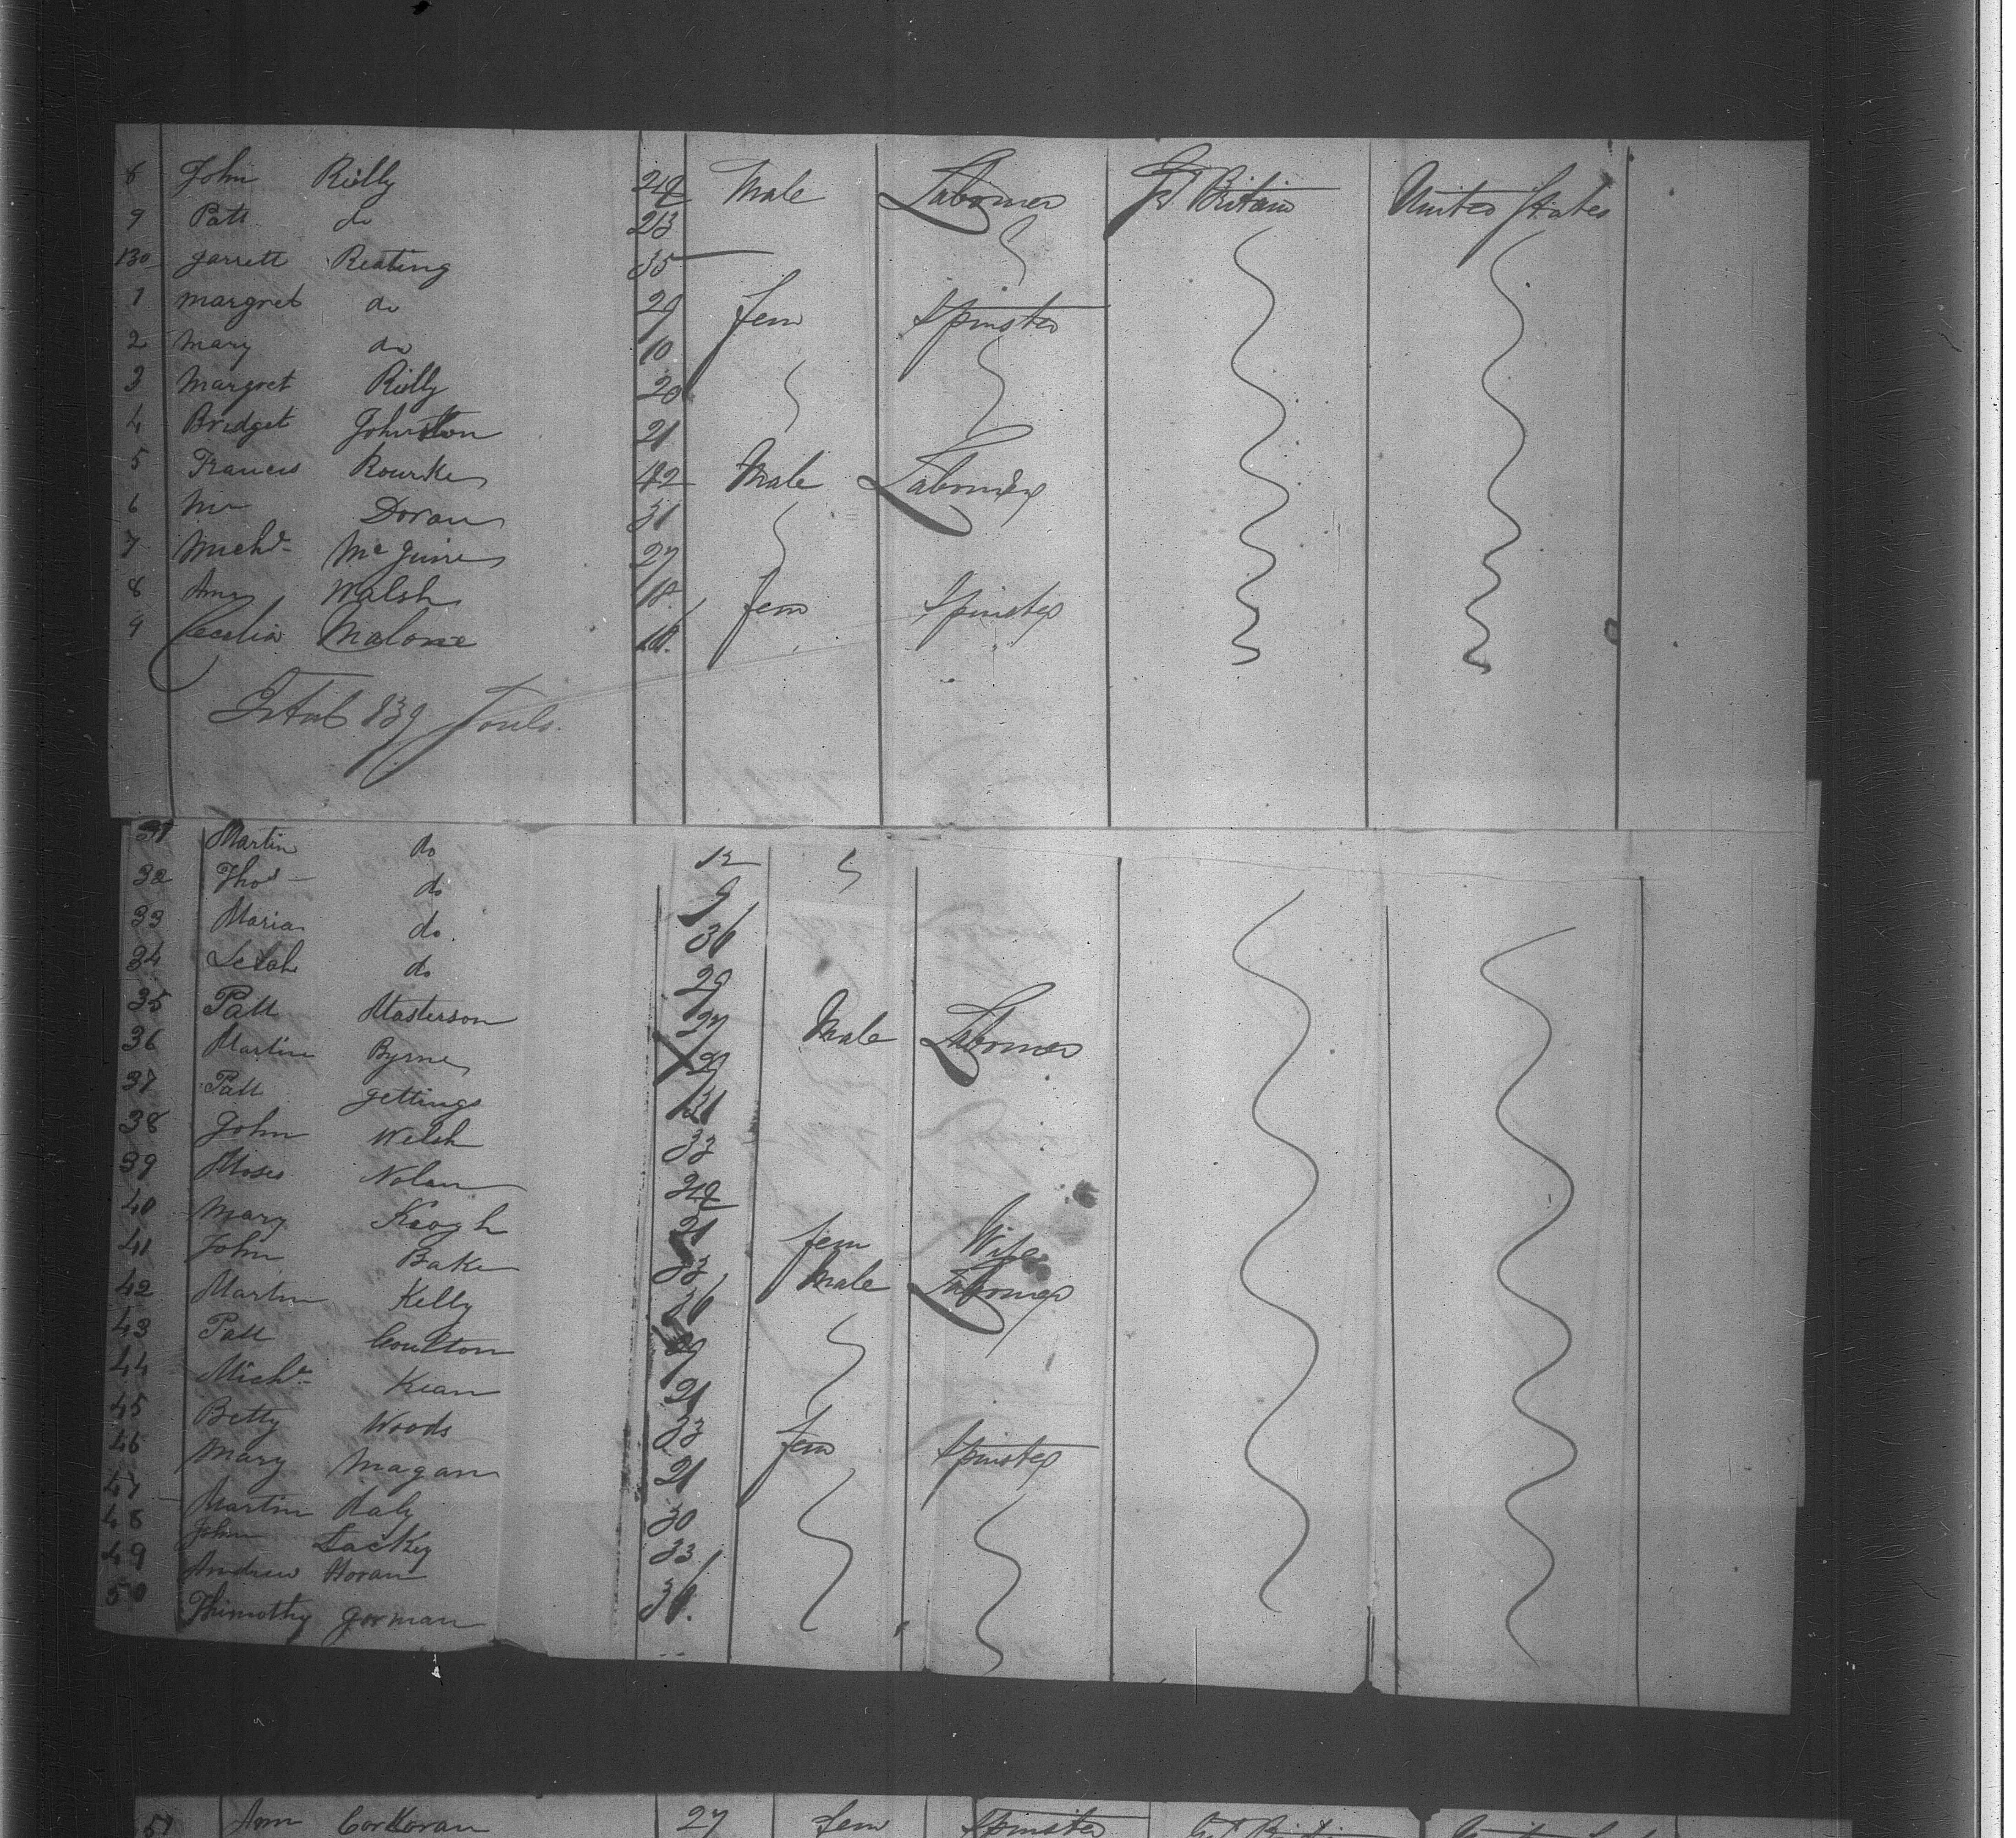 8 John Reilly 24 Male Labourer Gt Britain United States
9 Patt do 23
130 Garrett Keating 35
1 Margret do 29 fem Spinster
2 Mary do 10
3 Margret Reilly 20
4 Bridget Johnston 21
5 Francis Rourke 42 Male Labourer
6 Doran 31
7 Michl McGuire 27
8 Ann Walsh 18 fem Spinster
9 Cecelia Malone 18.
Total 139 Souls.
31 Martin do 12
32 Thos do 9
33 Maria do 36
34 do 29
35 Patt Masterson 27 Male Labourer
36 Martin Byrne 29
37 Patt Gettings 31
38 John Welsh 33
39 Moses Nolan 24
40 Mary Keogh 21 fem Wife
41 John Bake 33 Male Labourer
42 Martin Kelly 36
43 Patt Coulton 29
44 Michl Kean 21
45 Betty Woods 33 fem Spinster
46 Mary Magan 21
47 Martin Daly 30
48 John Lackey 33
49 Andrew Horan 36.
50 Thimothy Gorman
51 Ann Corkoran 27 fem Spinster Gt Britain